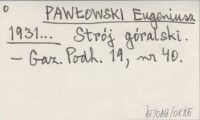 PAWŁOWSKI Eugeniusz
1931... Strój góralski.
— Gaz. Podh. 19, nr 40.